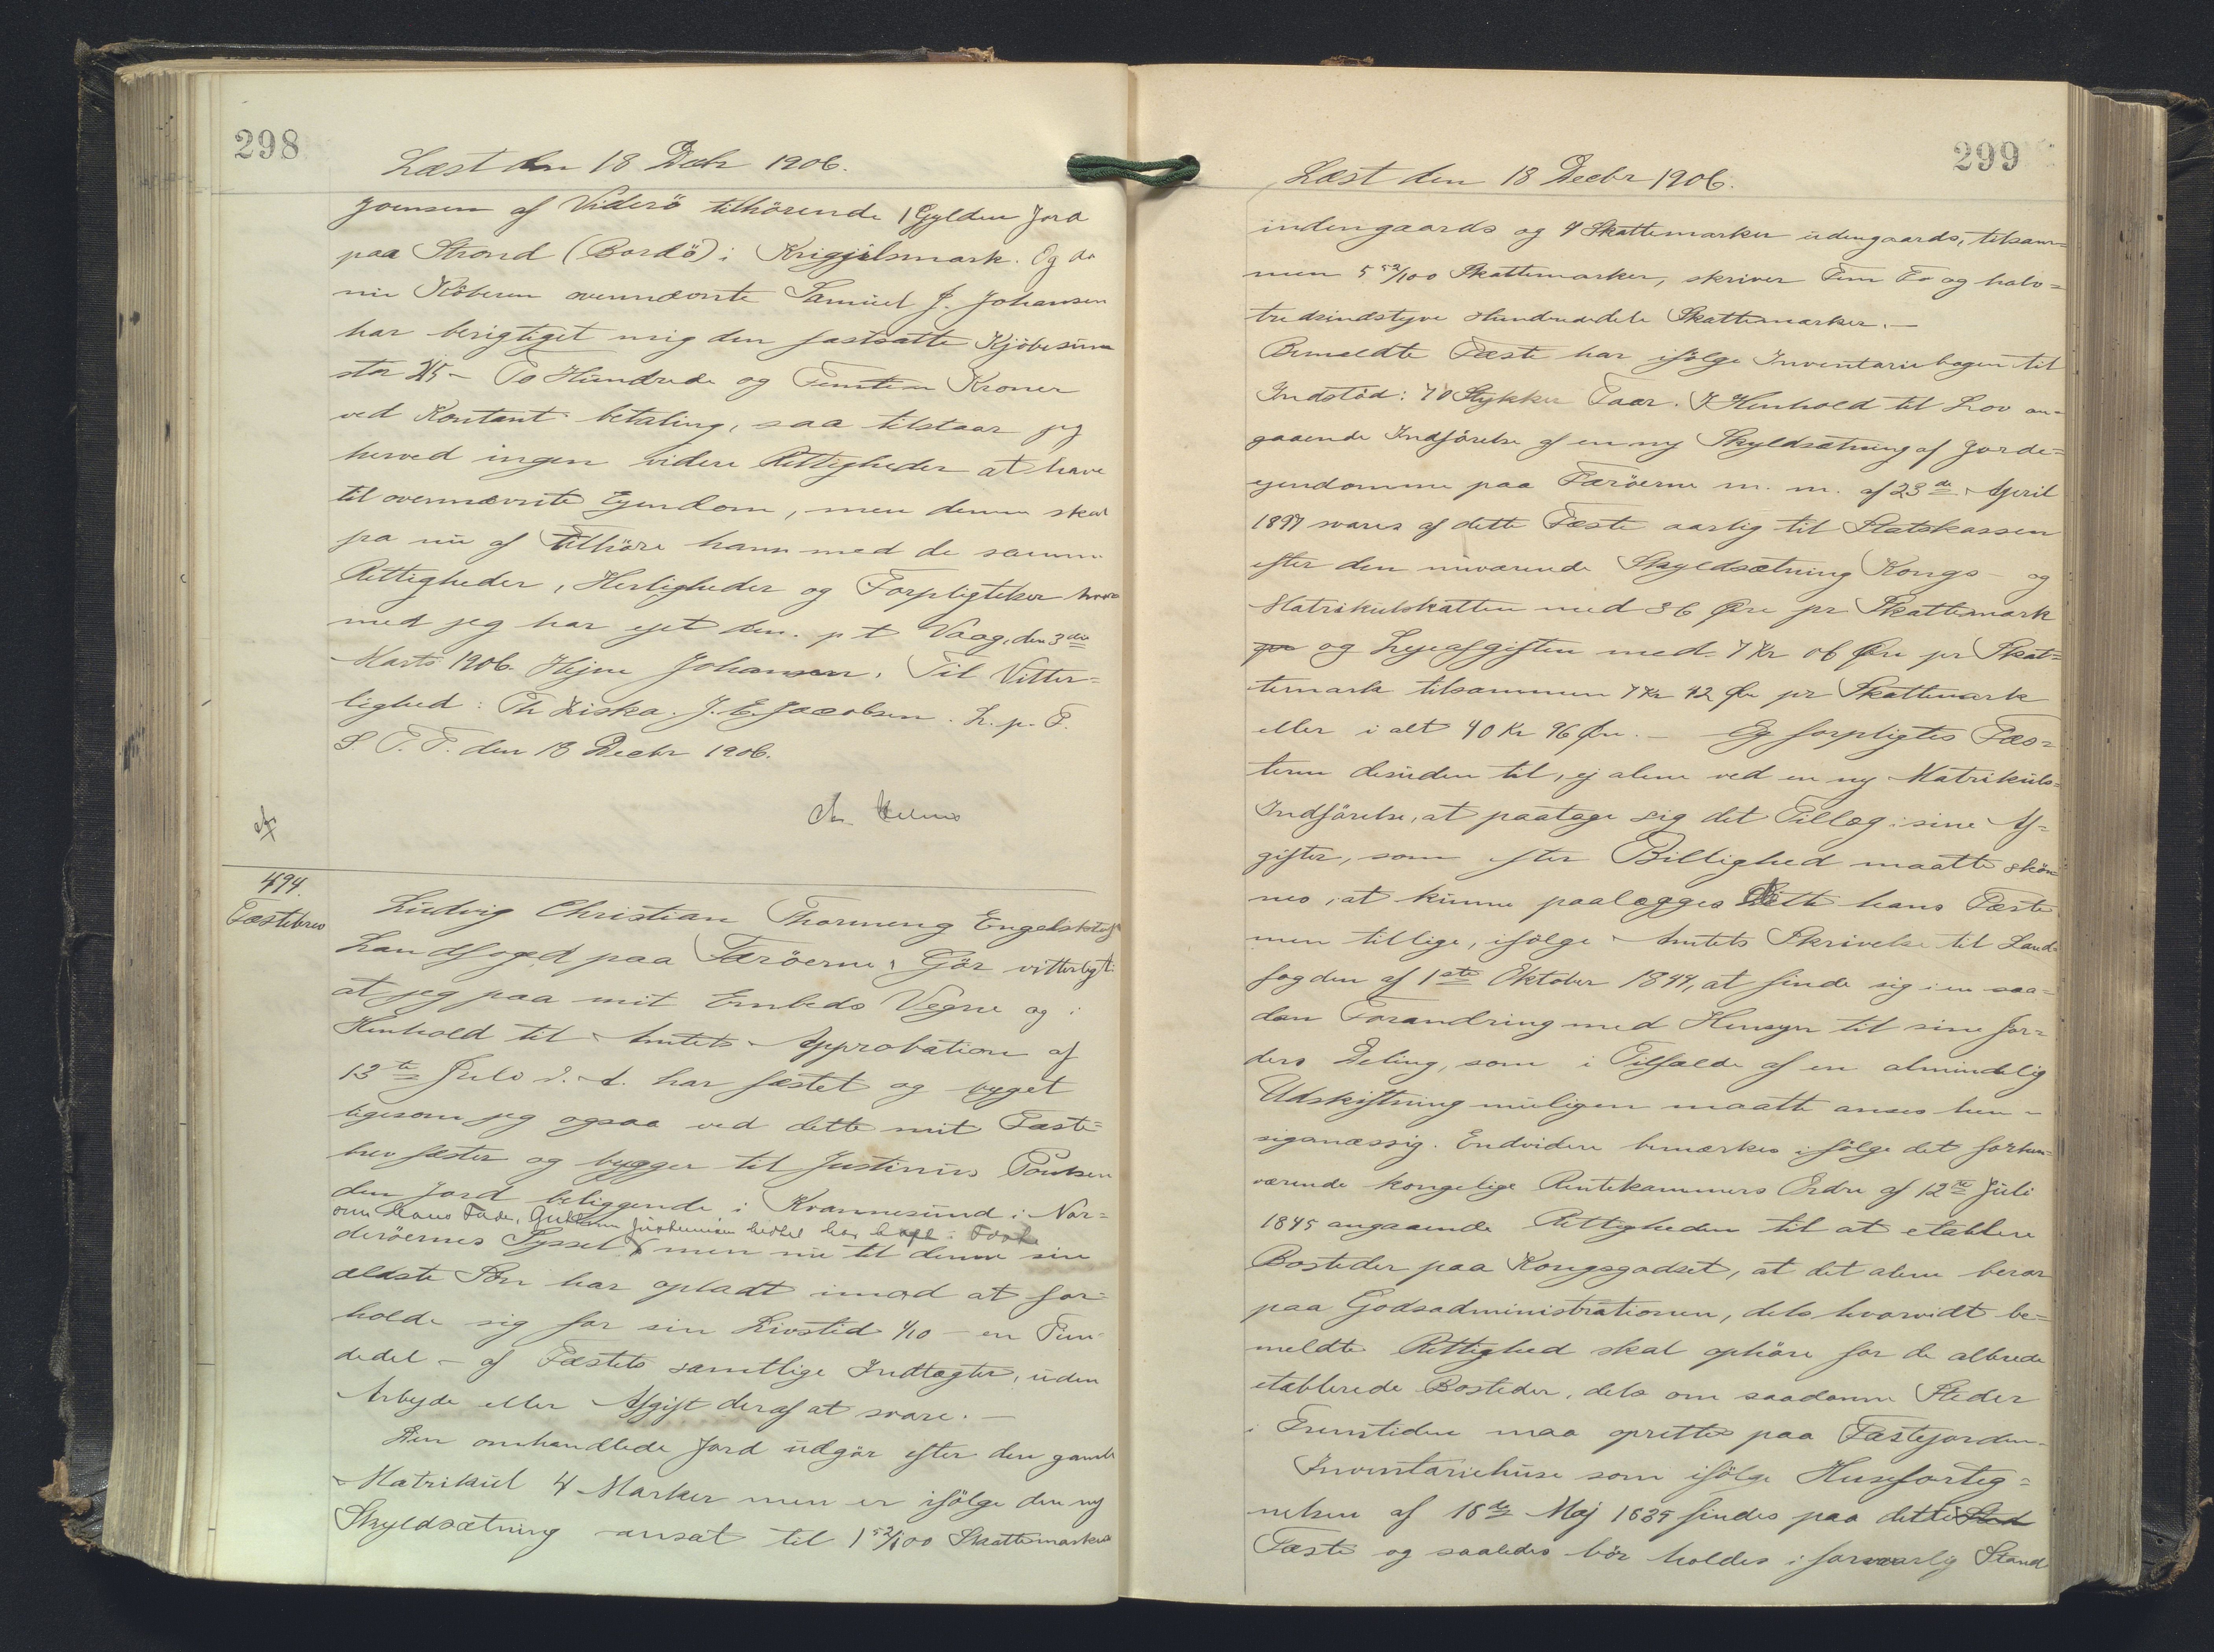 298
Læst den 18 Decbr 1906.
Joensen af Viderö tilhörende 1 Gylden Jord
paa Strond (Bordö) i Krigjilsmark. Og da
nu Köberen ovennævnte Samuel J. Johansen
har berigtiget mig den fastsatte Kjöbesum
stor 215 - To Hundrede og Femten Kroner
ved Kontant betaling, saa tilstaar jeg
herved ingen videre Rettigheder at have
til ovennævnte Ejendom, men denne skal
fra nu af tilhöre ham med de samme
Rettigheder, Herligheder og Forpligtelser hvor
med jeg har ejet den. p t Vaag, den 3die
Marts 1906. Hejne Johansen. Til Vitter=
lighed: Th Ziska. J. E. Jacobsen. L. p. F.
S. T. T. den 18 Decbr 1906.
494.
Fæstebrev
Ludvig Christian Thorning Engelstoft
Landfoged paa Færöerne, Gör vitterligt:
at jeg paa mit Embeds Vegne og i
Henhold til Amtets Approbation af
13te Juli d. A. har fæstet og bygget
ligesom jeg ogsaa ved dette mit Fæste=
brev fæster og bygger til Justinus Poulsen
den Jord beliggende i Kvannesund i Nor=
som Hans Fader, Justinussen hidtil har haft i Fæste
deröernes Syssel men nu til denne sin
ældste Sön har opladt imod at for=
holde sig for sin Livstid 1/10 - en Tien
dedel - af Fæstets samtlige Indtægter, uden
Arbejde eller Afgift deraf at svare. -
Den omhandlede Jord udgör efter den gamle
Matrikul 4 Marker men er ifölge den ny
Skyldsætning ansat til 1 52/100 Skattemarker
299
Læst den 18 Decbr 1906.
indengaards og 4 Skattemarker udengaards, tilsam=
men 5 52/100 Skattemarker, skriver Fem To og halv=
tredsindstyve Hundrededele Skattemarker. -
Bemeldte Fæste har ifölge Inventariebogen til
Indstöd: 70 Stykker Faar. I Henhold til Lov an=
gaaende Indförelse af en ny Skyldsætning af Jorde=
ejendomme paa Færöerne m. m. af 23de April
1897 svares af dette Fæste aarlig til Statskassen
efter den nuværende Skyldsætning Kongs- og
Matrikulskatten med 36 Öre pr Skattemark
og Lejeafgiften med 7 Kr 06 Öre pr Skat=
temark tilsammen 7 Kr 42 Öre pr Skattemark
eller i alt 40 Kr 96 Öre. - Og forpligtes Fæs=
teren desuden til, ej alene ved en ny Matrikuls=
Indförelse, at paatage sig det Tillæg i sine Af=
gifter, som efter Billighed maatte skön
nes, at kunne paalægges dette hans Fæste
men tillige, ifölge Amtets Skrivelse til Land
fogden af 1ste Oktober 1844, at finde sig i en saa=
dan Forandring med Hensyn til sine Jor=
ders Deling, som i Tilfælde af en almindelig
Udskiftning muligen maatte anses hen=
sigtsmæssig. Endvidere bemærkes ifölge det forhen=
værende kongelige Rentekammers Ordre af 12te Juli
1845 angaaende Rettigheden til at etablere
Bosteder paa Kongsgodset, at det alene beror
paa Godsadministrationen, dels hvorvidt be=
meldte Rettighed skal ophöre for de allerede
etablerede Bosteder, dels om saadanne Steder
i Fremtiden maa oprettes paa Fæstejorden.
Inventariehuse som ifölge Huseforteg=
nelsen af 18de Maj 1839 findes paa dette Sted
Fæste og saaledes bör holdes i forsvarlig Stand